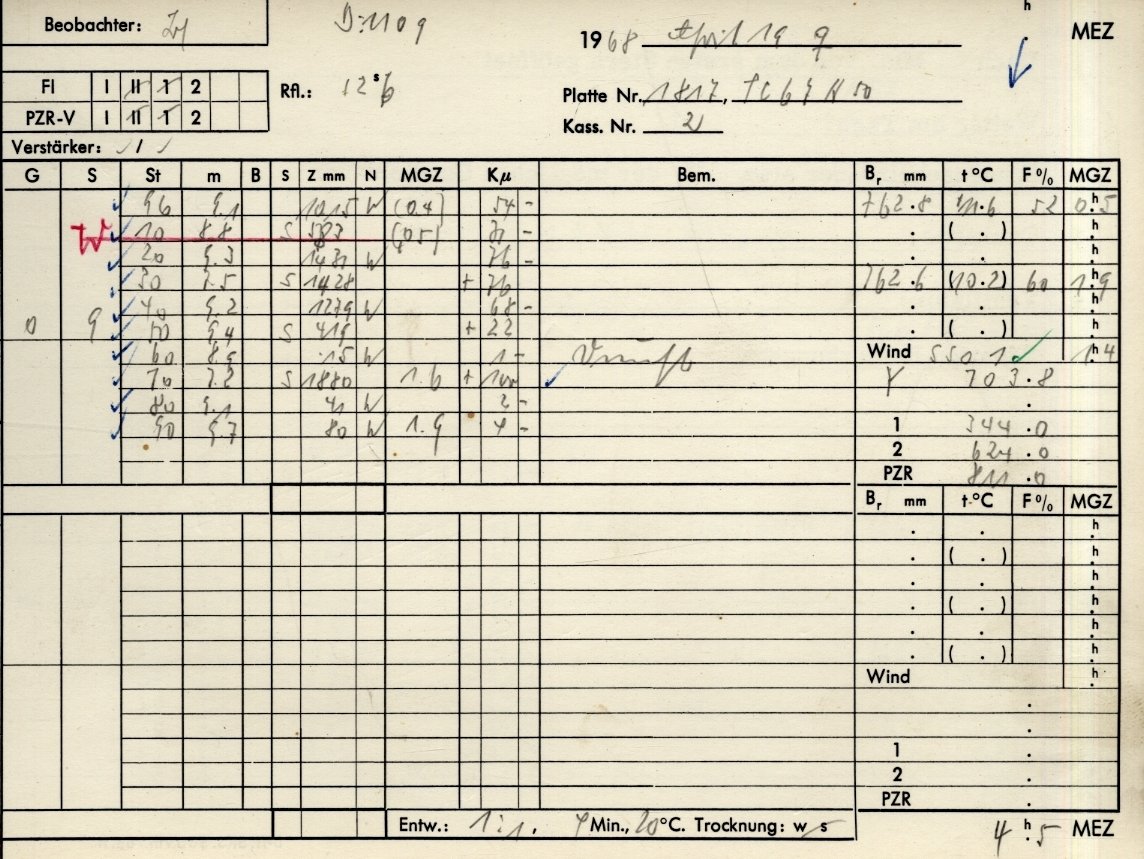 Beobachter:
D:1109
h
1968 April 19 ♀
MEZ
FI I II 1 2
PZR-V I II 1 2
Rfl.: 12 s 6
Platte Nr. 1817,
Kass. Nr. 2
Verstärker: 1
G S St m B S Z mm N MGZ Kμ Bem. Br mm t°C F% MGZ
96 9.1 1015 W (0.4) 54 - 762.8 11.6 52 0.h5
W 10 8.8 S (05) . ( . ) h.
20 9.3 1431 W 76 - . . h.
30 7.5 S 1428 + 76 762.6 (10.2) 60 1.h9
40 9.2 1279 W 68 - . . h.
0 9 50 9.4 S 419 + 22 . ( . ) h.
60 8.9 15 W 1 - Dunst Wind 5501 ✓ 1.h4
70 7.2 S 1880 1.6 + 100 γ 703.8
80 9.1 41 W 2 - .
90 9.7 80 W 1.9 4 - 1 344.0
2 624.0
PZR 811.0
Br mm t°C F% MGZ
. . h.
. ( . ) h.
. . h.
. ( . ) h.
. . h.
. ( . ) h.
Wind h.
.
.
1 .
2 .
PZR .
Entw.: 1:1, Min., 20°C. Trocknung: w s
4 h.5 MEZ